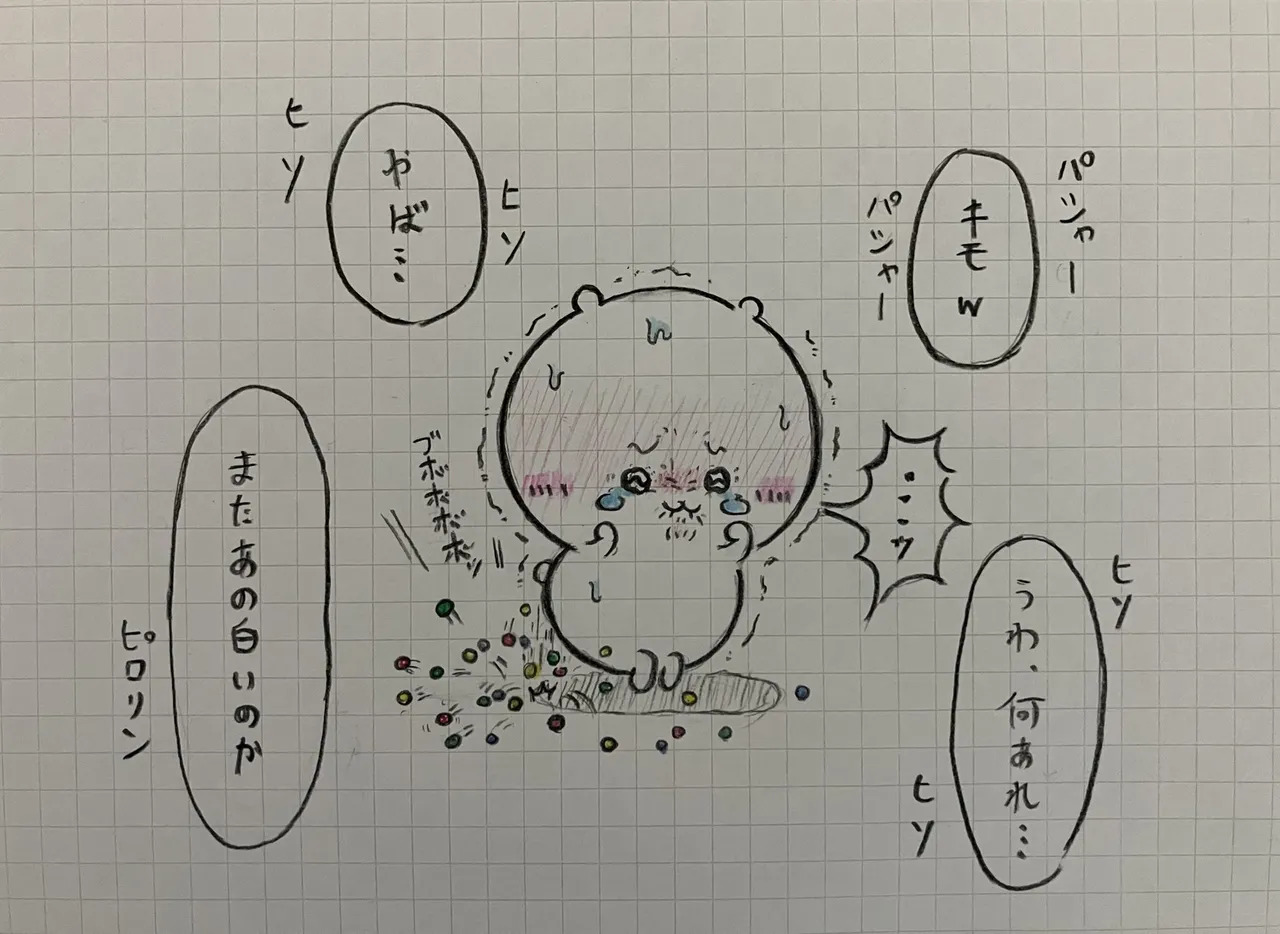 パシャー
キモw
パシャー
ヒソ
やば…
ヒソ
ヒソ
うわ、何あれ…
ヒソ
ブボボボボッ
またあの白いのか
ピロリン